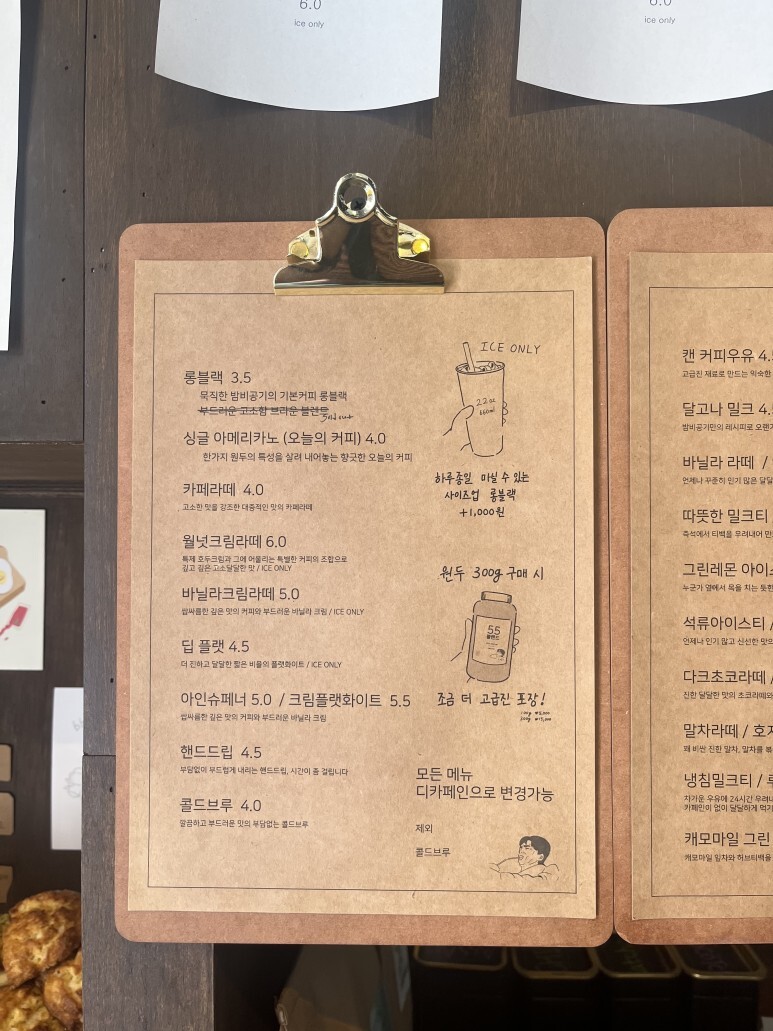 6.0
ice only
6.0
ice only
롱블랙 3.5
묵직한 밤비공기의 기본커피 롱블랙
부드러운 고소함 브라운 블렌드
Sold out
싱글 아메리카노 (오늘의 커피) 4.0
한가지 원두의 특성을 살려 내어놓는 향긋한 오늘의 커피
카페라떼 4.0
고소한 맛을 강조한 대중적인 맛의 카페라떼
월넛크림라떼 6.0
특제 호두크림과 그에 어울리는 특별한 커피의 조합으로
깊고 깊은 고소달달한 맛 / ICE ONLY
바닐라크림라떼 5.0
쌉싸름한 깊은 맛의 커피와 부드러운 바닐라 크림 / ICE ONLY
딥 플랫 4.5
더 진하고 달달한 짧은 비율의 플랫화이트 / ICE ONLY
아인슈페너 5.0 / 크림플랫화이트 5.5
쌉싸름한 깊은 맛의 커피와 부드러운 바닐라 크림
핸드드립 4.5
부담없이 부드럽게 내리는 핸드드립, 시간이 좀 걸립니다
콜드브루 4.0
깔끔하고 부드러운 맛의 부담없는 콜드브루
ICE ONLY
22oz
650ml
하루종일 마실 수 있는
사이즈업 롱블랙
+1,000원
원두 300g 구매 시
55
블렌드
조금 더 고급진 포장!
모든 메뉴
디카페인으로 변경가능
제외
콜드브루
캔 커피우유 4.5
고급진 재료로 만드는 익숙한
달고나 밀크 4.
밤비공기만의 레시피로 오랜
바닐라 라떼 /
언제나 꾸준히 인기 많은 달달
따뜻한 밀크티
즉석에서 티백을 우려내어 만
그린레몬 아이스
누군가 옆에서 목을 치는 듯한
석류아이스티 /
언제나 인기 많고 신선한 맛의
다크초코라떼 /
진한 달달한 맛의 초코라떼와
말차라떼 / 호지
꽤 비싼 진한 말차, 말차를 볶
냉침밀크티 / 루
차가운 우유에 24시간 우려내
카페인이 없이 달달하게 먹기
캐모마일 그린
캐모마일 말차와 허브티백을